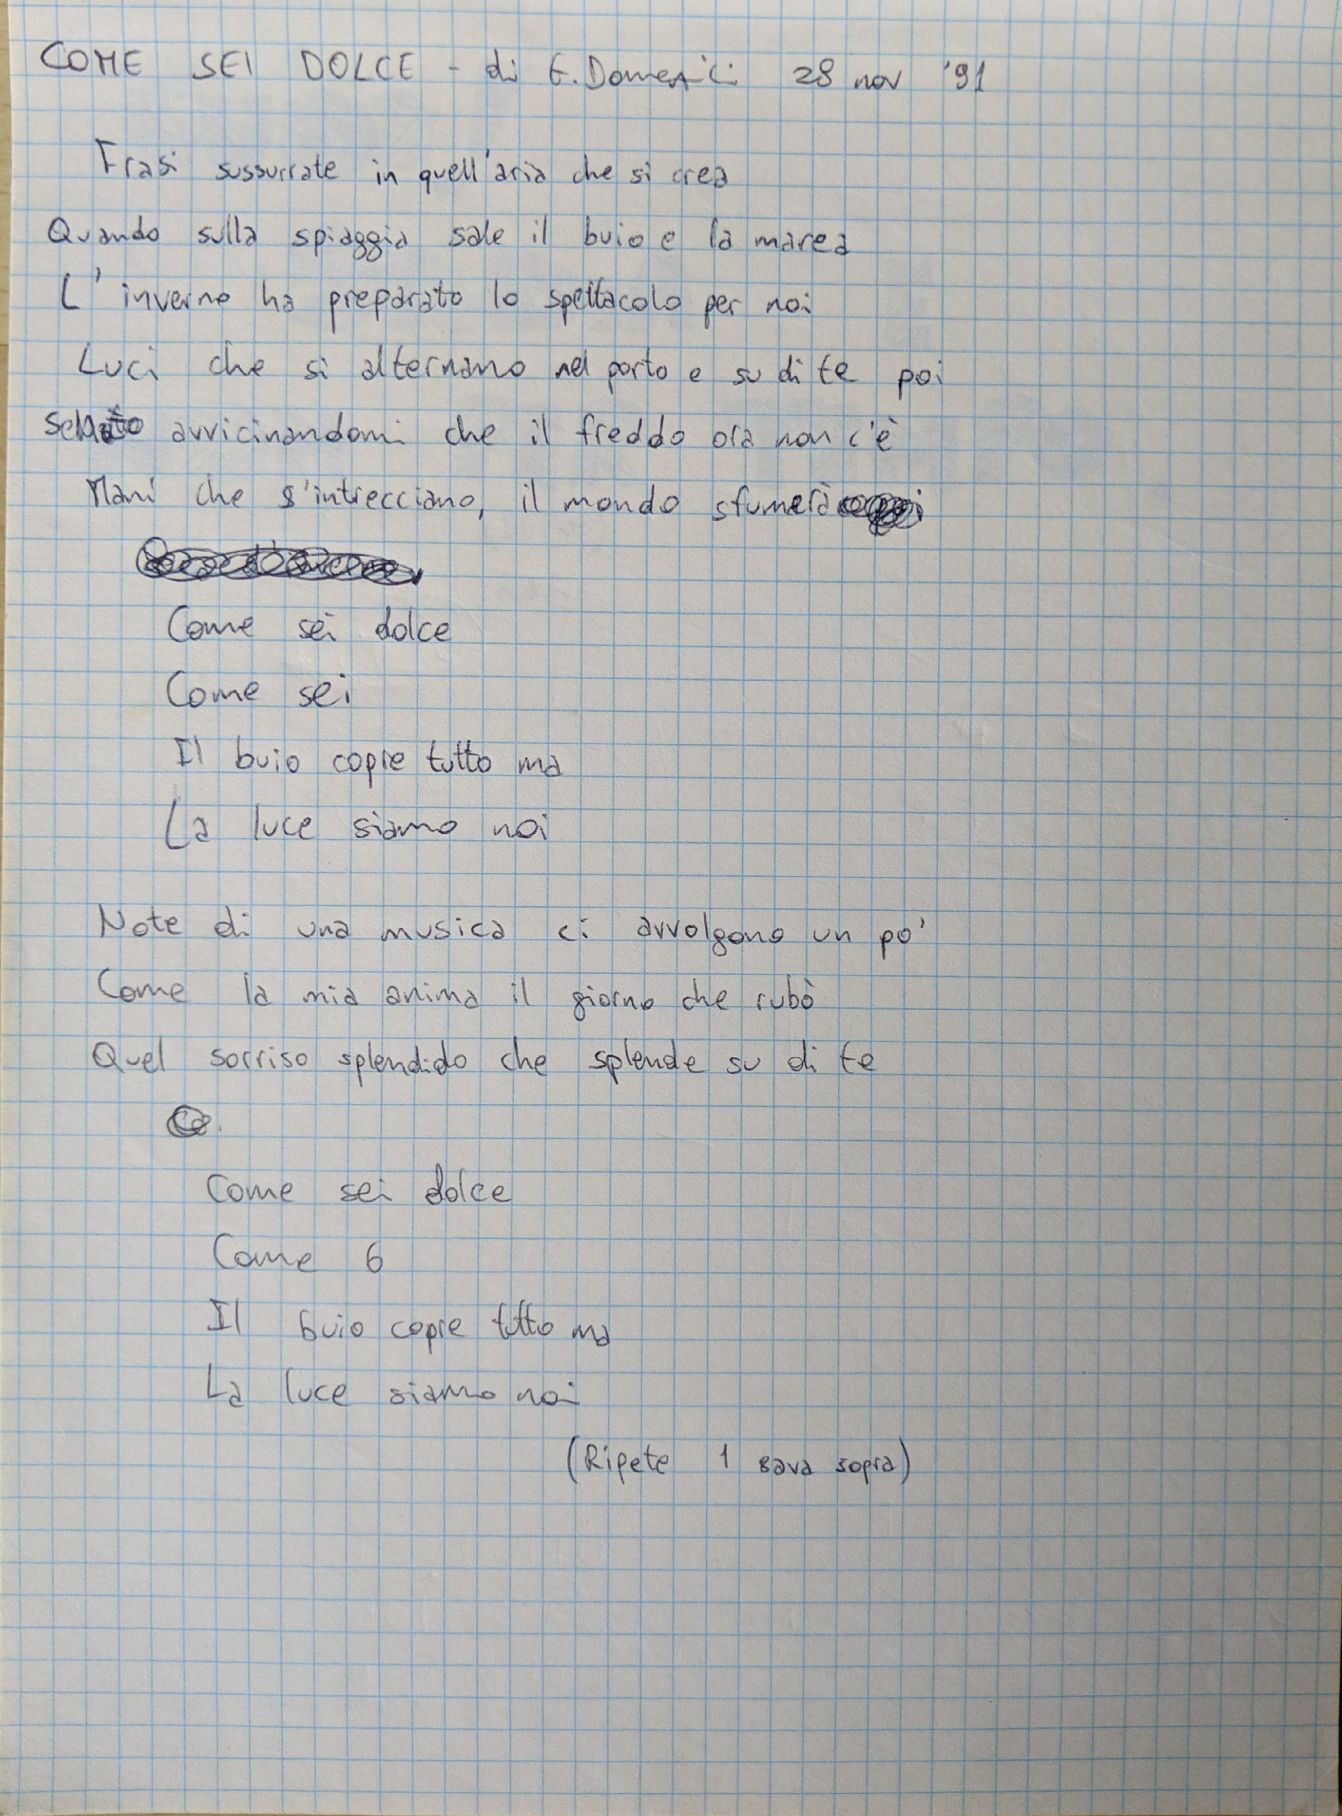 COME SEI DOLCE - di E. Domenici 28 nov '91
Frasi sussurrate in quell'aria che si crea
Quando sulla spiaggia sale il buio e la marea
L'inverno ha preparato lo spettacolo per noi
Luci che si alternano nel porto e su di te poi
avvicinandomi che il freddo ora non c'è
Mani che s'intrecciano, il mondo sfumerà
Come sei dolce
Come sei
Il buio copre tutto ma
La luce siamo noi
Note di una musica ci avvolgono un po'
Come la mia anima il giorno che rubò
Quel sorriso splendido che splende su di te
Come sei dolce
Come 6
Il buio copre tutto ma
La luce siamo noi
(Ripete 1 sopra)